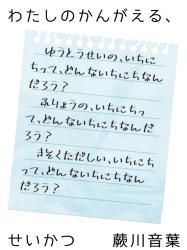 わたしのかんがえる、
ゆうとうせいの、いちに
ちって、どんないちにちなん
だろう？
ふりょうの、いちにちっ
て、どんないちにちなんだろ
う？
きそくただしい、いちにち
って、どんないちにちなん
だろう？
せいかつ 蕨川音葉